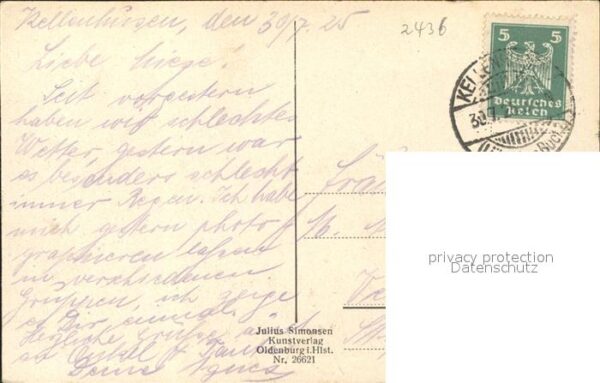 Kellenhusen, den 30/7. 25
2436
Liebe
Seit vorgestern
haben wir schlechtes
Wetter, gestern war
es besonders schlecht
immer Regen. Ich habe
mich gestern photo
graphieren lassen
in verschiedenen
Gruppen, ich zeige
es Dir einmal.
Herzliche Grüße
an Onkel
Deine Agnes
5 5
Deutsches
Reich
KELLEN
30.7.
Julius Simonsen
Kunstverlag
Oldenburg i. Hlst.
Nr. 26621
privacy protection
Datenschutz